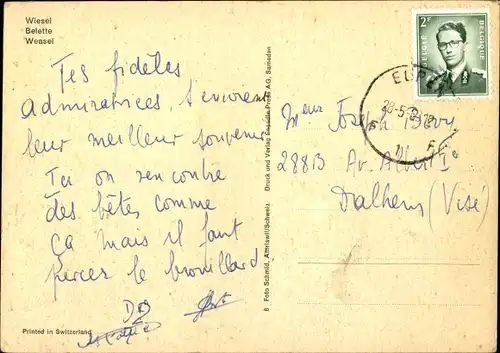 Wiesel
Belette
Weasel
Tes fidèles
admiratrices, t'envoient
leur meilleur souvenir
Ici on rencontre
des bêtes comme
ça mais il faut
percer le brouillard
Printed in Switzerland
6 Foto Schmid, Amriswil/Schweiz Druck und Verlag Engadin Press AG, Samedan
2F
BELGIE BELGIQUE
EUPEN
28-5-
Mons Joseph
288B Av. Albert Ie
Dalhem (Visé)